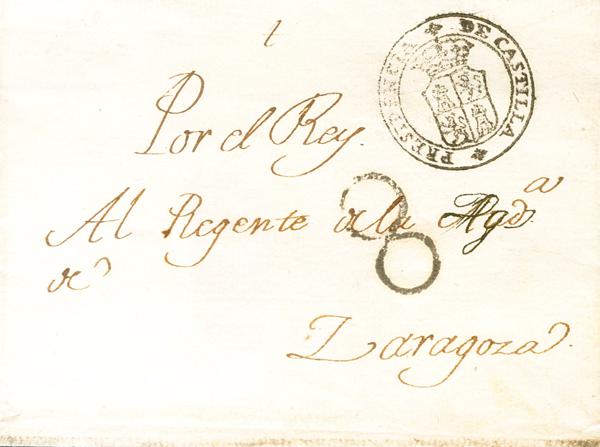 PRESIDENCIA DE CASTILLA
Por el Rey.
Al Regente de la
de
Zaragoza
8